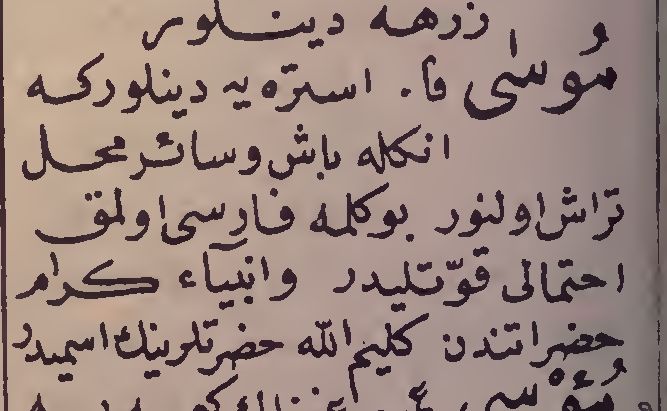 زرهه دينلور
مُوسٰى فا. استرّه يه دينلوركه
انكله باش و سائر محل
تراش اولنور بو كلمه فارسى اولمق
احتمالى قوّتليدر وانبيآء كرام
حضراتندن كليم الله حضرتلرينك اسميدر